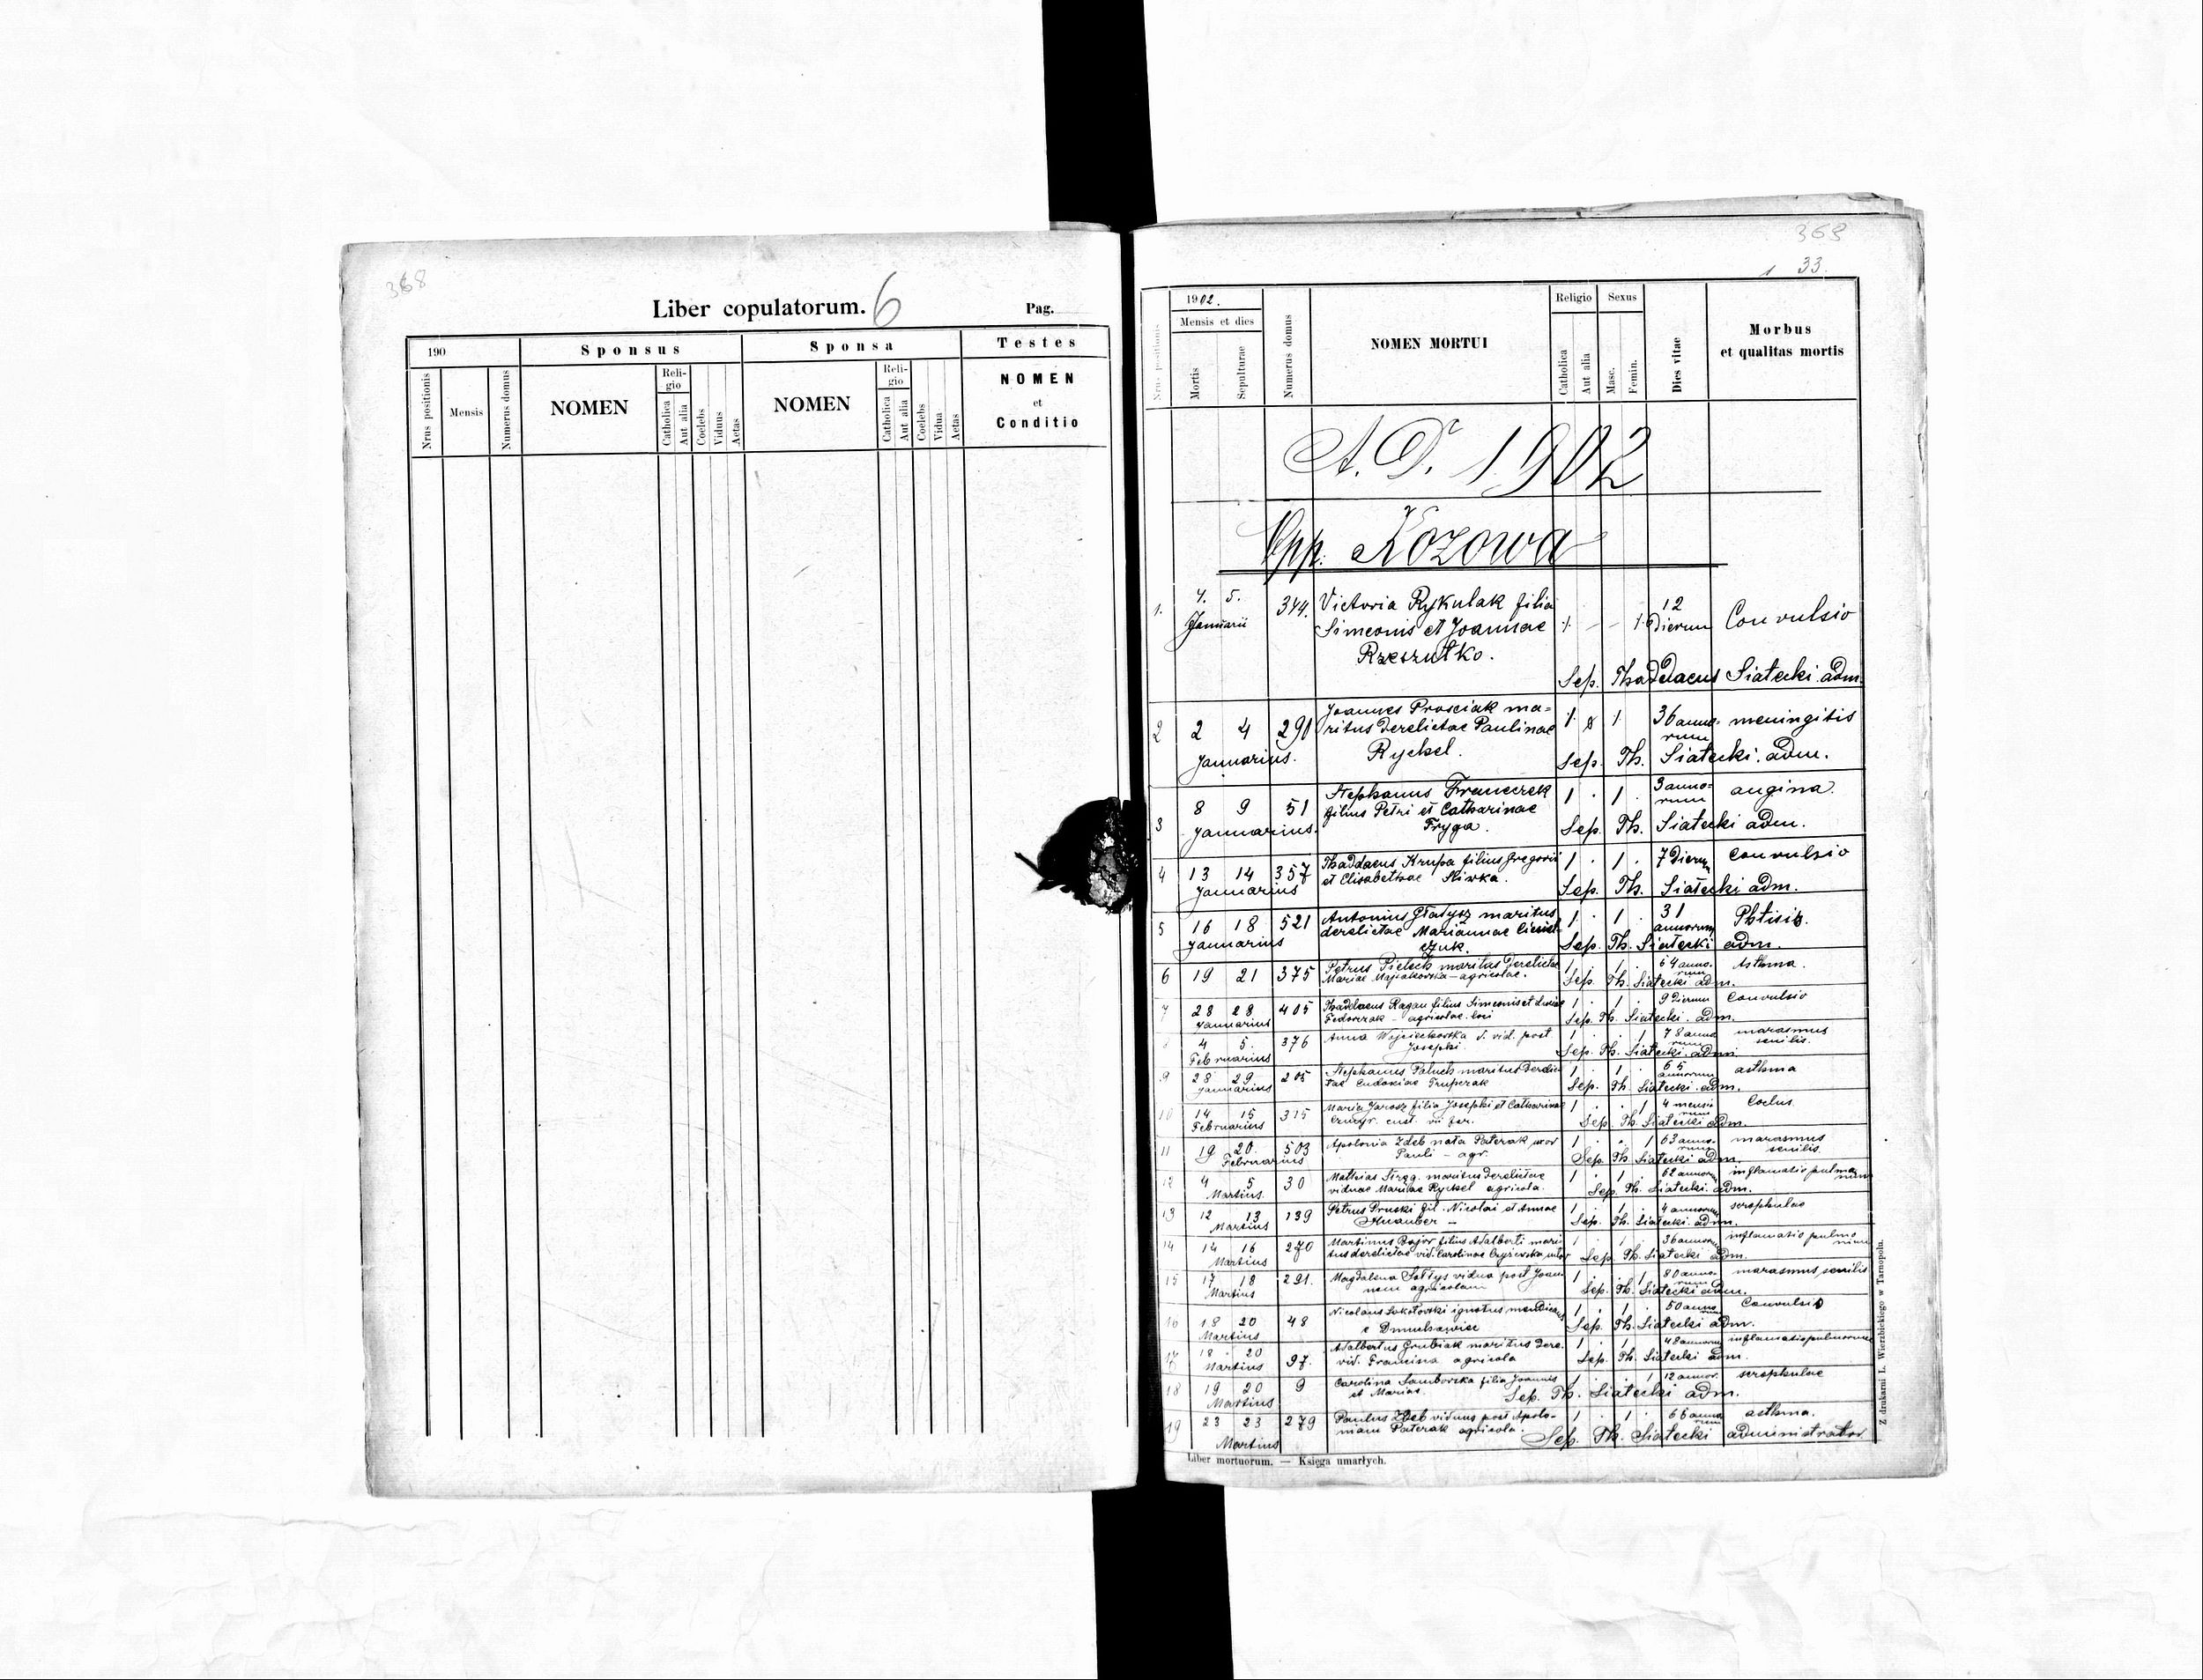 368
Liber copulatorum. 6 Pag.
190 Sponsus Sponsa Testes
Nrus positionis Mensis Numerus domus NOMEN Religio Catholica Aut alia Coelebs Viduus Aetas NOMEN Religio Catholica Aut alia Coelebs Vidua Aetas NOMEN et Conditio
33.
1902.
Mensis et dies
Nrus positionis Mortis Sepulturae Numerus domus NOMEN MORTUI Religio Catholica Aut alia Sexus Masc. Femin. Dies vitae Morbus et qualitas mortis
A. D. 1902
Opp. Kozowa
1. 4. 5. 344. Victoria Rykulak filia 12
Januarii Simeonis et Joannae 1. 1. dierum Convulsio
Rzeszutko.
Sep. Thaddaeus Siatecki adm.
2 2 4 290 Joannes Prosciak ma= 1. 1. 36 anno- meningitis
ritus derelictae Paulinae rum
Januarius. Ryckel. Sep. Th. Siatecki. adm.
3 8 9 51 Stephanus Franczek 1 . 1 . 3 anno= angina.
filius Petri et Catharinae rum
Januarius. Fryga. Sep. Th. Siatecki adm.
4 13 14 357 Thaddaeus Krupa filius Gregorii 1 . 1 . 7 dierum Convulsio
Januarius et Elisabethae Sliwka. Sep. Th. Siatecki adm.
5 16 18 521 Antonius Gładysz maritus 1 . 1 . 31 Phtisis.
Januarius derelictae Mariannae annorum
czuk. Sep. Th. Siatecki adm.
6 19 21 375 Petrus maritus derelictae 1 . 1 . 64 anno- Asthma.
Mariae agricolae. rum
Sep. Th. Siatecki adm.
7 28 28 405 Thaddaeus Ragan filius Simeonis et 1 . 1 . 9 dierum Convulsio
Januarius Fedorczak - agricolae loci Sep. Th. Siatecki. adm.
8 4 5. 376 Anna vid. post 1 . . 1 78 anno marasmus
Februarius Josephi. rum senilis.
Sep. Th. Siatecki adm.
9 28 29 205 Stephanus Paluch maritus derelic 1 . 1 . 65 asthma
Januarius tae Eudoxiae annorum
Sep. Th. Siatecki. adm.
10 14 15 315 Maria Jarosz filia Josephi et Catharinae 1 . . 1 4 mensi Coclus
Februarius cust. Sep. Th. Siatecki adm.
11 19 20. 503 Apolonia Zdeb nata Paterak uxor 1 . . 1 63 anno- marasmus
Februarius Pauli - agr. rum senilis
Sep. Th. Siatecki adm.
12 4 5 30 Mathias maritus derelictae 1 . 1 . 62 annorum inflamatio pulmo
Martius viduae Mariae Ryckel agricola. num
Sep. Th. Siatecki. adm.
13 12 13 139 Petrus Pruski fil. Nicolai et Annae 1 . 1 . 4 annorum scrophulae
Martius Knauber - Sep. Th. Siatecki. adm.
14 14 16 270 Martinus Bojor filius Adalberti mari 1 . 1 . 36 annorum inflamatio pulmo
Martius tus derelictae vid. Carolinae num
Sep. Th. Siatecki adm.
15 17 18 291. Magdalena Sołtys vidua post Joan 1 . . 1 80 anno- marasmus senilis
Martius nem agricolam rum
Sep. Th. Siatecki adm.
16 18 20 48 Nicolaus Sokołowski ignotus mendicus 1 . 1 . 50 anno Convulsio
Martius e Dmuchawice rum
Sep. Th. Siatecki adm.
17 18 20 97. Adalbertus Grubiak maritus dere. 1 . 1 . 48 annorum inflamatio pulmonum
Martius vid. Francisca agricola Sep. Th. Siatecki adm.
18 19 20 9 Carolina Samborska filia Joannis 1 . . 1 12 annor. scrophulae
Martius et Mariae. Sep. Th. Siatecki adm.
19 23 23 279 Paulus Zdeb viduus post Apolo- 1 . 1 . 66 anno asthma.
Martius niam Paterak agricola. rum
Sep. Th. Siatecki administrator
Liber mortuorum. — Księga umarłych.
Z drukarni L. Wierzbickiego w Tarnopolu.